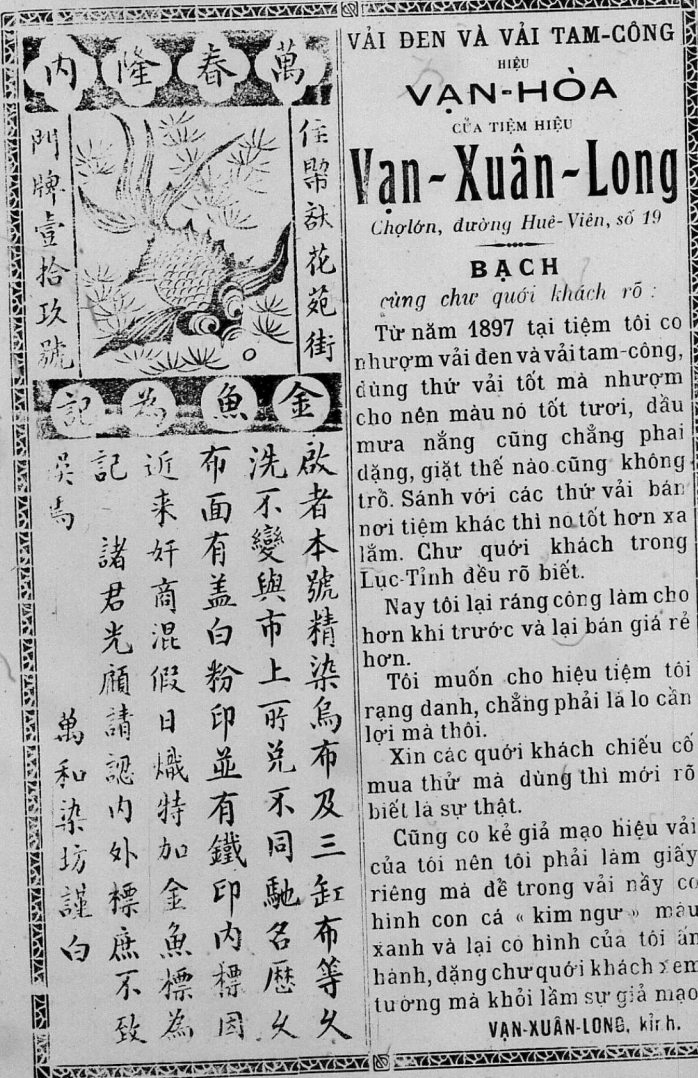 萬春隆內
住花苑街
門牌壹拾玖號
金魚為記
啟者本號精染烏布及三缸布等久
洗不變與市上所兑不同馳名歷久
布面有盖白粉印並有鐵印内標因
近来奸商混假日熾特加金魚標為
記 諸君光顧請認内外標庶不致
焉 萬和染坊謹白
VẢI ĐEN VÀ VẢI TAM-CÔNG
HIỆU
VẠN-HÒA
CỦA TIỆM HIỆU
Vạn-Xuân-Long
Chợlớn, đường Huê-Viên, số 19
BẠCH
cùng chư quới khách rõ :
Từ năm 1897 tại tiệm tôi co
nhượm vải đen và vải tam-công,
dùng thứ vải tốt mà nhượm
cho nên màu nó tốt tươi, dầu
mưa nắng cũng chẳng phai
dặng, giặt thế nào cũng không
trổ. Sánh với các thứ vải bán
nơi tiệm khác thì no tốt hơn xa
lắm. Chư quới khách trong
Lục-Tỉnh đều rõ biết.
Nay tôi lại ráng công làm cho
hơn khi trước và lại bán giá rẻ
hơn.
Tôi muốn cho hiệu tiệm tôi
rạng danh, chẳng phải là lo cần
lợi mà thôi.
Xin các quới khách chiếu cố
mua thử mà dùng thì mới rõ
biết là sự thật.
Cũng co kẻ giả mạo hiệu vải
của tôi nên tôi phải làm giấy
riêng mà đề trong vải nầy co
hình con cá « kim ngư » màu
xanh và lại có hình của tôi ấn
hành, dặng chư quới khách xem
tường mà khỏi lầm sự giả mạo
VẠN-XUÂN-LONG, kính.